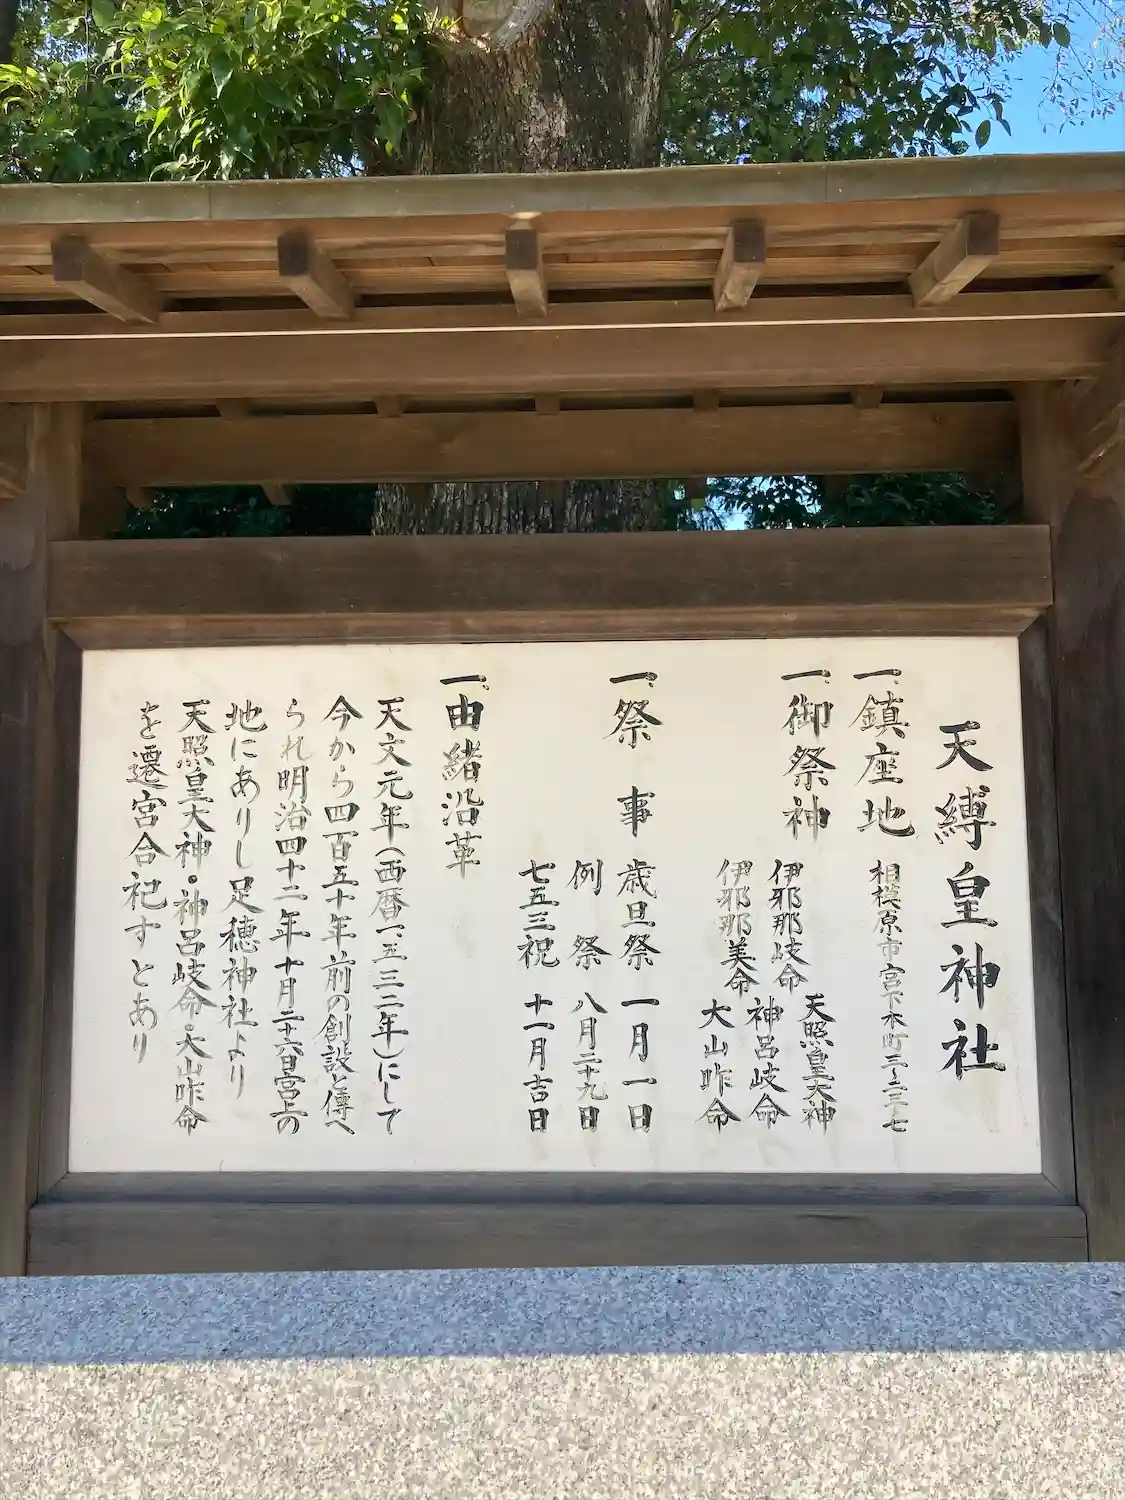 天縛皇神社
一、鎮座地 相模原市宮下本町三ー二三ー七
一、御祭神
伊邪那岐命 天照皇大神
伊邪那美命 神呂岐命
大山咋命
一、祭事
歳旦祭 一月一日
例祭 八月二十九日
七五三祝 十一月吉日
一、由緒沿革
天文元年(西暦一、五三二年)にして
今から四百五十年前の創設と傳へ
られ明治四十二年十月二十六日宮上の
地にありし足穂神社より
天照皇大神・神呂岐命・大山咋命
を遷宮合祀すとあり